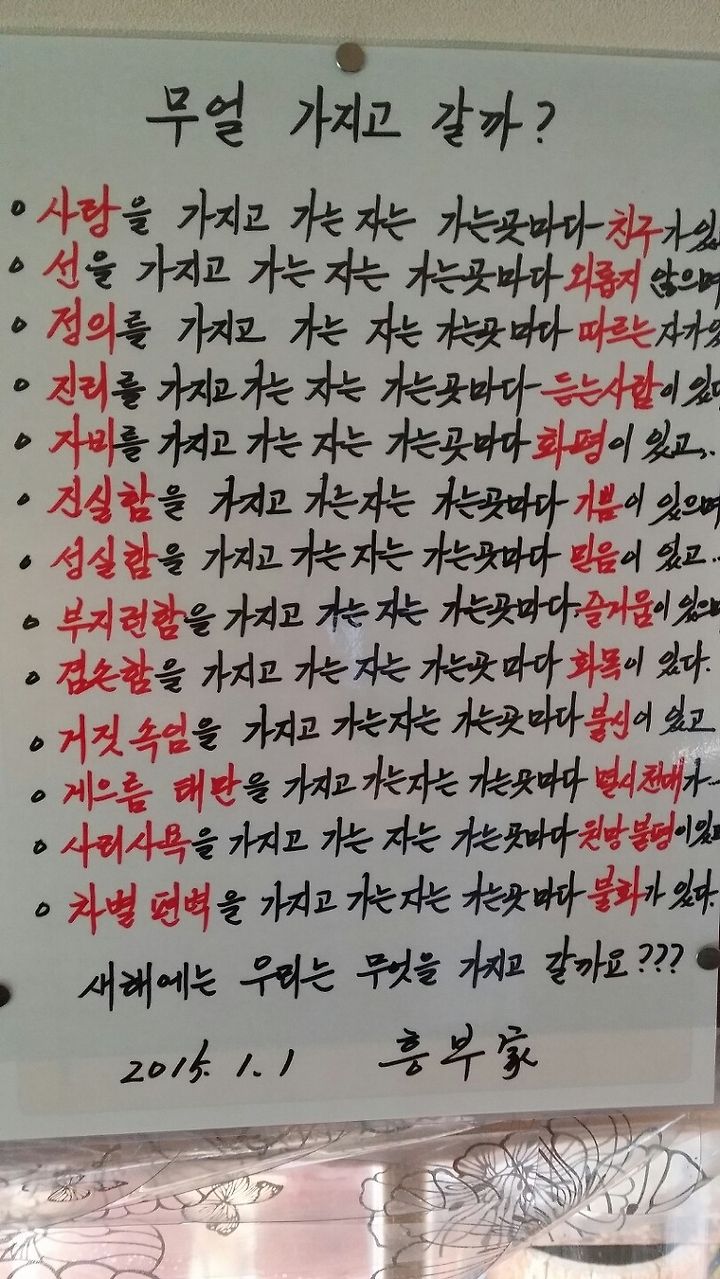 무얼 가지고 갈까?
사랑을 가지고 가는 자는 가는곳마다 친구가 있
선을 가지고 가는 자는 가는곳마다 외롭지 않으며
정의를 가지고 가는 자는 가는곳마다 따르는 자가
진리를 가지고 가는 자는 가는곳마다 듣는사람이 있
자비를 가지고 가는 자는 가는곳마다 화평이 있고,..
진실함을 가지고 가는자는 가는곳마다 기쁨이 있으며
성실함을 가지고 가는 자는 가는곳마다 믿음이 있고...
부지런함을 가지고 가는 자는 가는곳마다 즐거움이 있으
겸손함을 가지고 가는 자는 가는곳마다 화목이 있다.
거짓 속임을 가지고 가는자는 가는곳마다 불신이 있고
게으름 태만을 가지고 가는자는 가는곳마다 멸시천대가...
사리사욕을 가지고 가는 자는 가는곳마다 원망불평이 있고
차별 편벽을 가지고 가는자는 가는곳마다 불화가 있다.
새해에는 우리는 무엇을 가지고 갈까요???
2015. 1. 1 흥부家